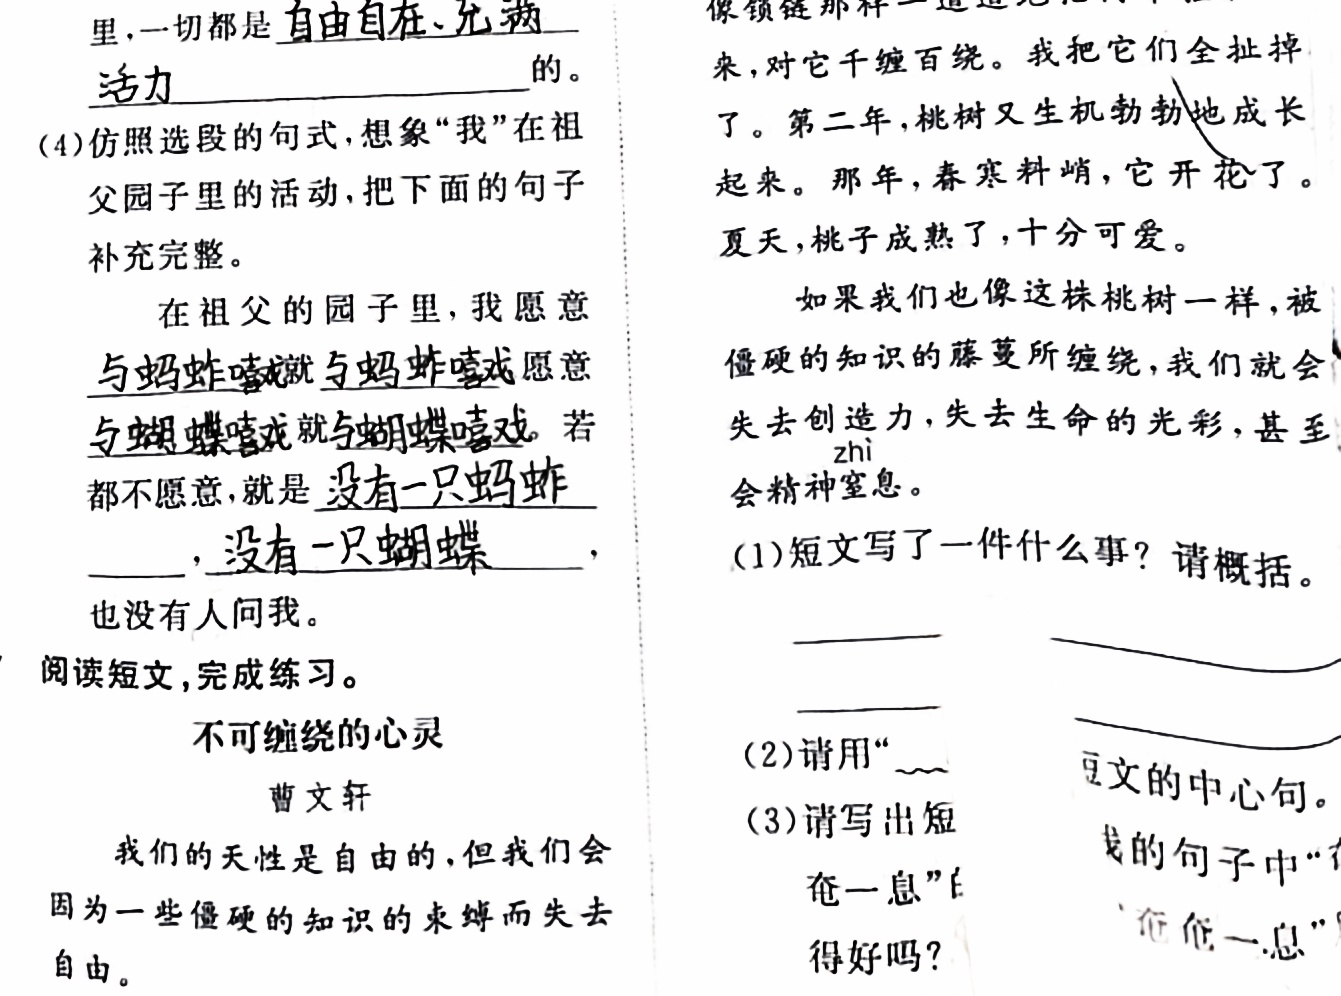 里，一切都是自由自在、充满
活力的。
(4)仿照选段的句式，想象“我”在祖
父园子里的活动，把下面的句子
补充完整。
在祖父的园子里，我愿意
与蚂蚱嘻戏就与蚂蚱嘻戏愿意
与蝴蝶嘻戏就与蝴蝶嘻戏。若
都不愿意，就是没有一只蚂蚱
，没有一只蝴蝶，
也没有人问我。
阅读短文，完成练习。
不可缠绕的心灵
曹文轩
我们的天性是自由的，但我们会
因为一些僵硬的知识的束缚而失去
自由。
像锁链那样一道道地
来，对它千缠百绕。我把它们全扯掉
了。第二年，桃树又生机勃勃地成长
起来。那年，春寒料峭，它开花了。
夏天，桃子成熟了，十分可爱。
如果我们也像这株桃树一样，被
僵硬的知识的藤蔓所缠绕，我们就会
失去创造力，失去生命的光彩，甚至
zhì
会精神窒息。
(1)短文写了一件什么事？请概括。
(2)请用“ 文的中心句。
(3)请写出短 的句子中“
奄一息” 奄一息”
得好吗？